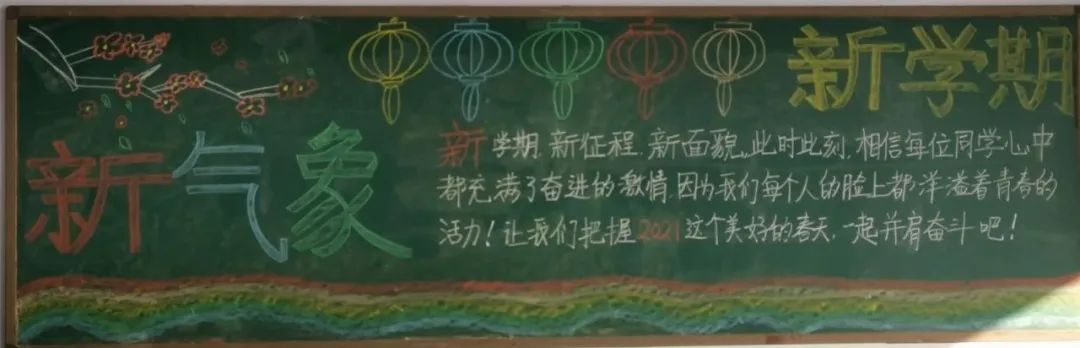 新学期
新气象
新学期,新征程,新面貌。此时此刻,相信每位同学心中
都充满了奋进的激情,因为我们每个人的脸上都洋溢着青春的
活力!让我们把握2021这个美好的春天,一起并肩奋斗吧!